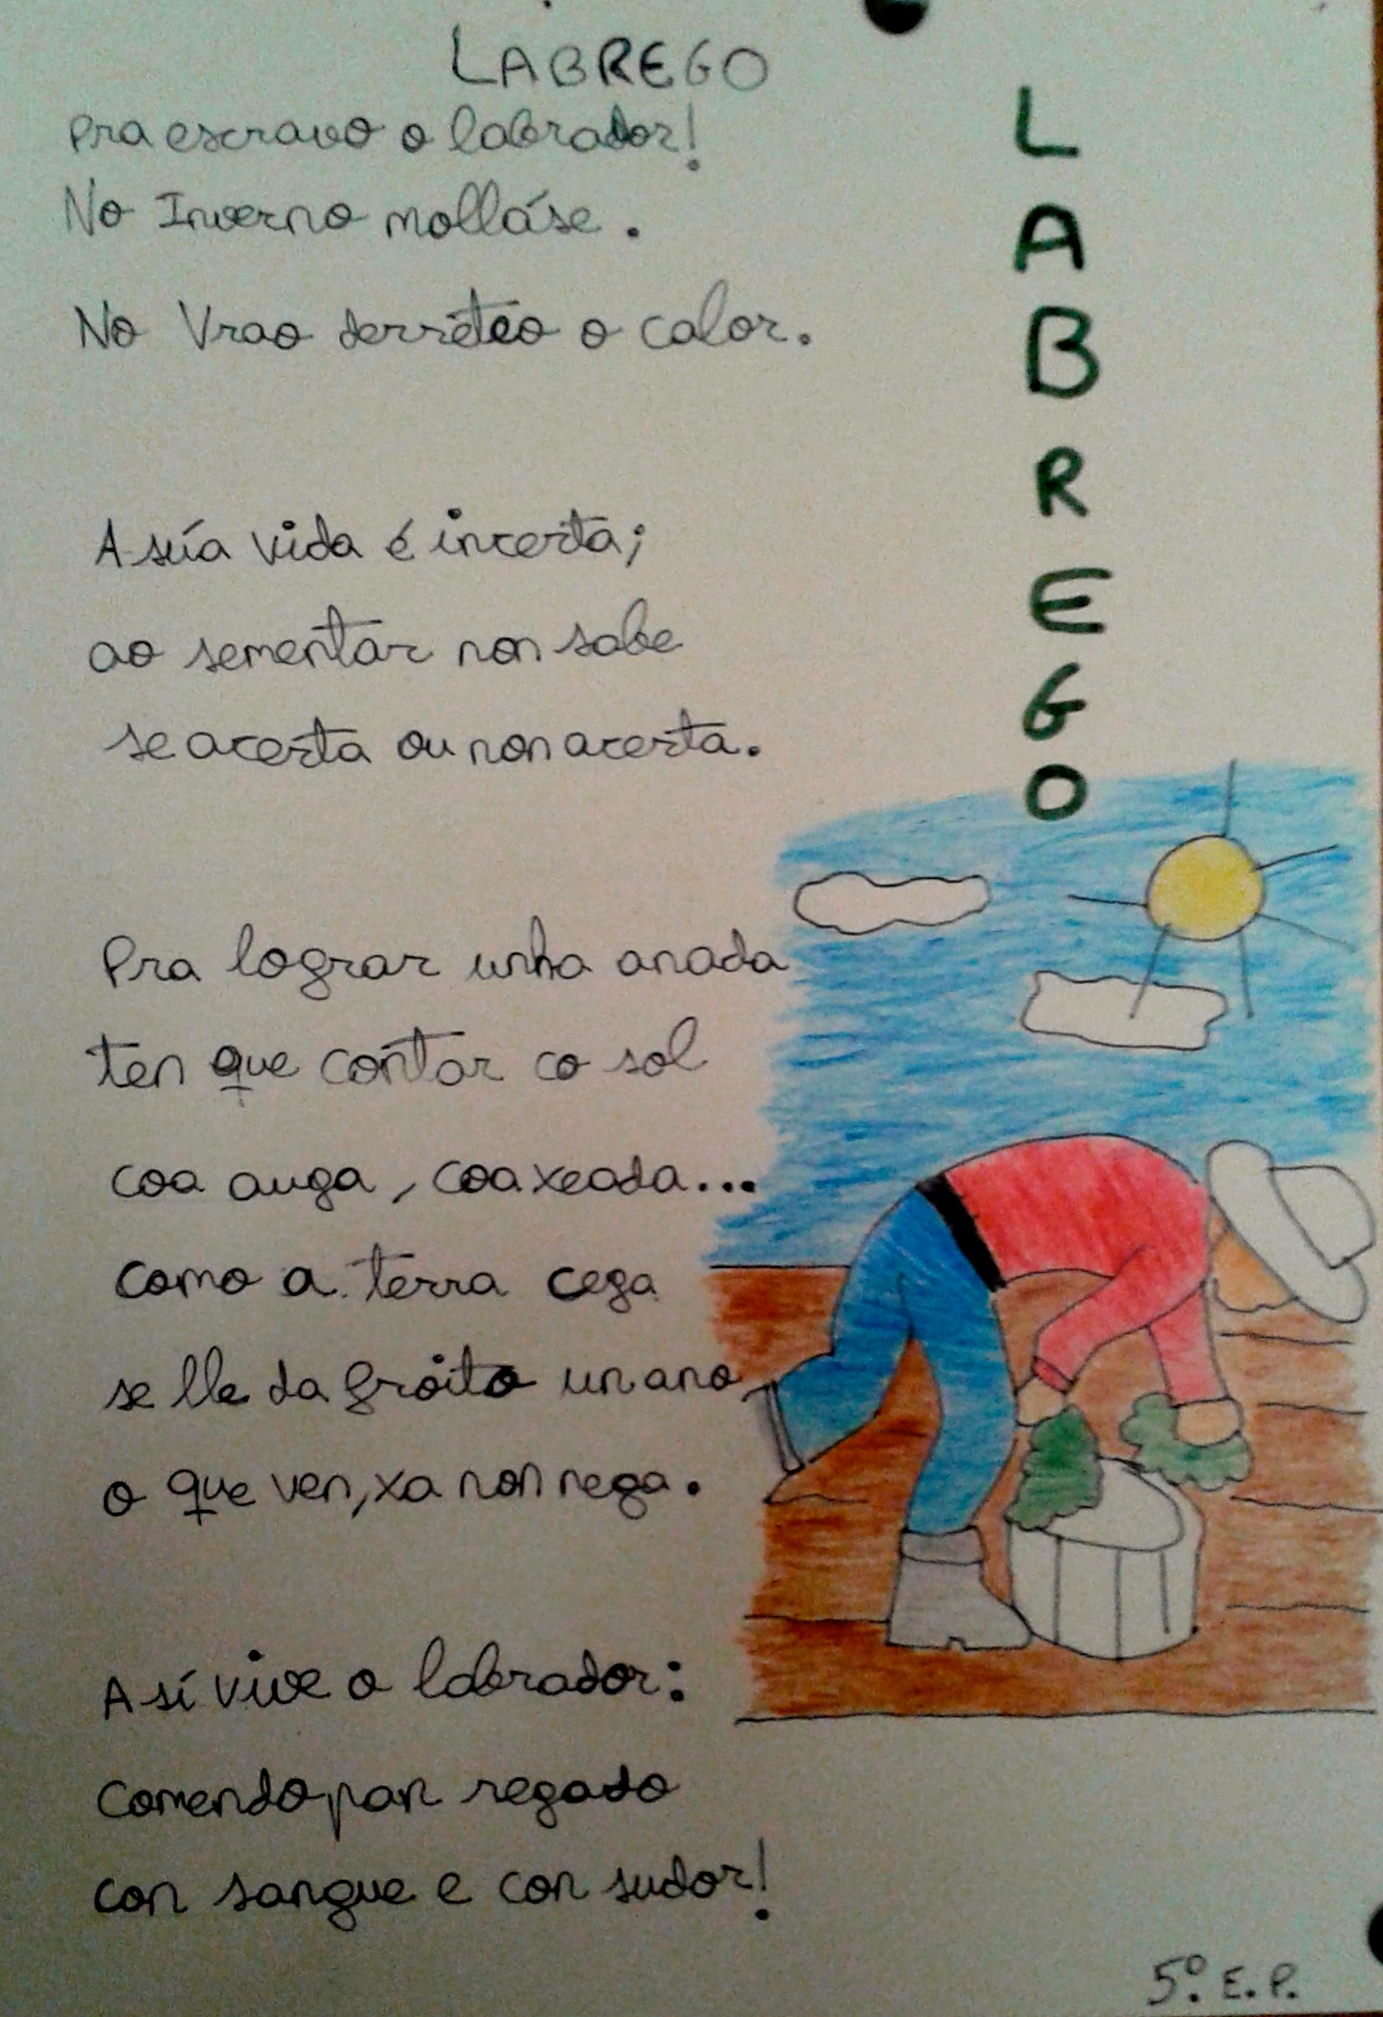 LABREGO
Pra escravo o labrador!
No Inverno molláse.
No Vrao derrételo o calor.
A súa vida é incerta;
ao sementar non sabe
se acerta ou non acerta.
Pra lograr unha anada
ten que contar co sol
coa auga, coa xeada...
como a terra cega
se lle da froito un ano
o que ven, xa non nega.
Así vive o labrador:
Comendo pan regado
con sangue e con sudor!
LABREGO
5º. E. P.